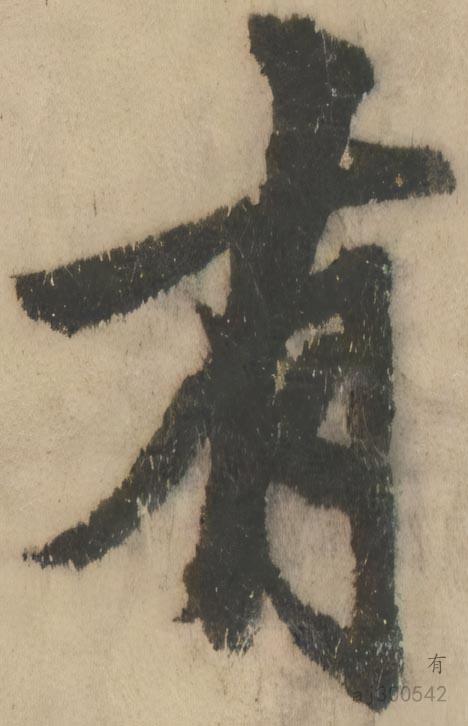 有
有
aj300542